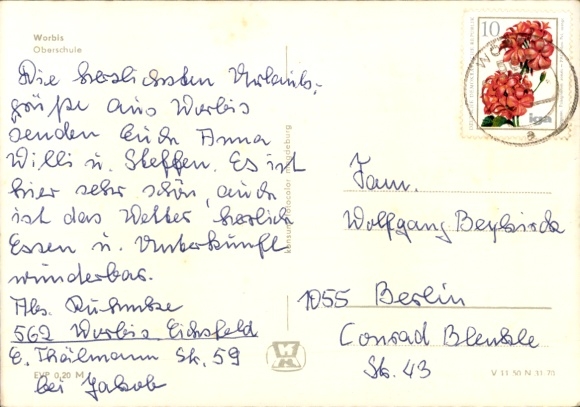 Worbis
Oberschule
Die herzlichsten Urlaubs-
grüße aus Worbis
senden Euch Anna
Willi u. Steffen. Es ist
hier sehr schön, auch
ist das Wetter herrlich
Essen u. Unterkunft
wunderbar.
Abs.
562 Worbis Eichsfeld
E. Thälmann Str. 59
bei Jakob
EVP 0,20 M
konsum fotocolor magdeburg
10
iga
Fam.
Wolfgang Beykirch
1055 Berlin
Conrad Blenkle
Str. 43
V 11 50 N 31 70